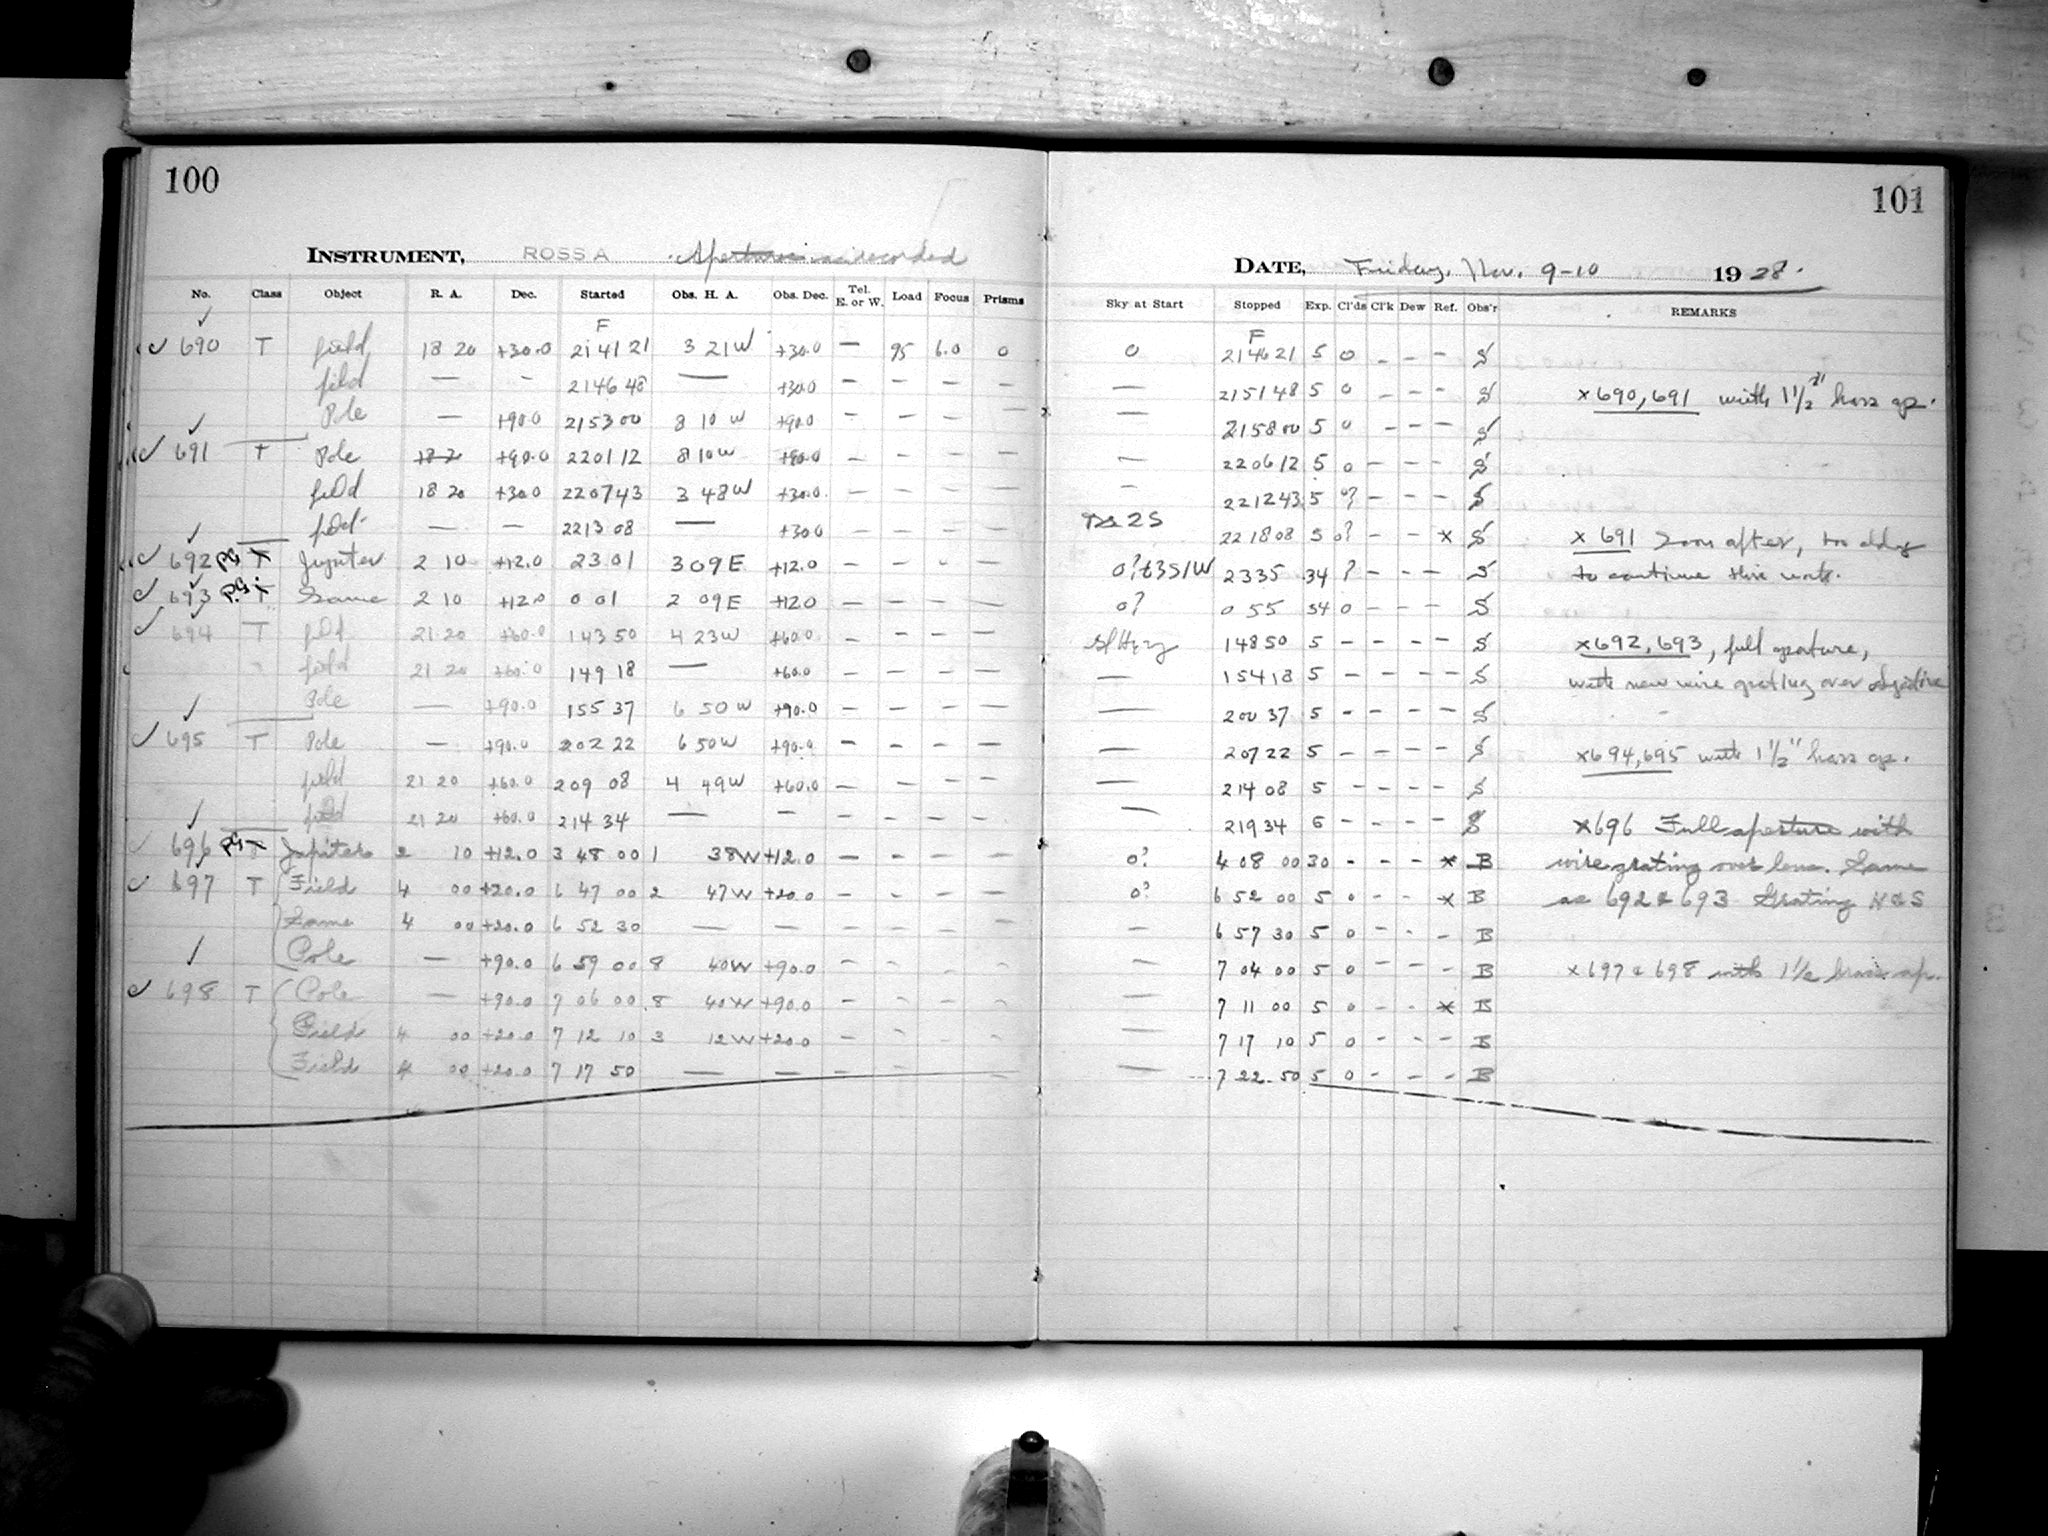 100
INSTRUMENT, ROSS A Apertures as recorded
No. Class Object R. A. Dec. Started Obs. H. A. Obs. Dec. Tel. E. or W. Load Focus Prisms
F
690 T field 18 20 +30.0 21 41 21 3 21 W +30.0 — 95 6.0 0
field — - 21 46 48 — +30.0 — — — —
Pole — +90.0 21 53 00 8 10 W +90.0 — — — —
691 T Pole 18 20 +90.0 22 01 12 8 10 W +90.0 — — — —
field 18 20 +30.0 22 07 43 3 48 W +30.0 — — — —
field — — 22 13 08 — +30.0 — — — —
692 PG T Jupiter 2 10 +12.0 23 01 3 09 E +12.0 — — - —
693 PG T Same 2 10 +12.0 0 01 2 09 E +12.0 — — — —
694 T field 21 20 +60.0 1 43 50 4 23 W +60.0 — — — —
field 21 20 +60.0 1 49 18 — +60.0 — — — —
Pole — +90.0 1 55 37 6 50 W +90.0 — — — —
695 T Pole — +90.0 2 02 22 6 50 W +90.0 — — — —
field 21 20 +60.0 2 09 08 4 49 W +60.0 — — — —
field 21 20 +60.0 2 14 34 — — — — — —
696 PG T Jupiter 2 10 +12.0 3 48 00 1 38 W +12.0 — — — —
697 T Field 4 00 +20.0 6 47 00 2 47 W +20.0 — - — —
Same 4 00 +20.0 6 52 30 — — — — — —
Pole — +90.0 6 59 00 8 40 W +90.0 — — - -
698 T Pole — +90.0 7 06 00 8 40 W +90.0 — - - -
Field 4 00 +20.0 7 12 10 3 12 W +20.0 — - - -
Field 4 00 +20.0 7 17 50 — — — - - —
101
DATE, Friday, Nov. 9-10 1928.
Sky at Start Stopped Exp. Cl'ds Cl'k Dew Ref. Obs'r REMARKS
F
0 21 46 21 5 0 - - - S
— 21 51 48 5 0 - - - S x690, 691 with 1 1/2" brass ap.
— 21 58 00 5 0 - - - S
— 22 06 12 5 0 - - - S
— 22 12 43 5 0? - - - S
2S 22 18 08 5 0? - - x S x 691 Soon after, too cldy
0? t3S1W 23 35 34 ? - - - S to continue this work.
0? 0 55 54 0 - - - S
Sl Hzy 1 48 50 5 - - - - S x692, 693, full aperture,
— 1 54 18 5 - - - - S with new wire grating over objective
— 2 00 37 5 - - - - S
— 2 07 22 5 - - - - S x694, 695 with 1 1/2" brass ap.
— 2 14 08 5 - - - - S
— 2 19 34 5 - - - - S x696 Full aperture with
0? 4 08 00 30 - - - x B wire grating over lens. Same
0? 6 52 00 5 0 - - x B as 692 & 693 Grating N & S
— 6 57 30 5 0 - - - B
— 7 04 00 5 0 - - - B x697 & 698 with 1 1/2 brass ap.
— 7 11 00 5 0 - - x B
— 7 17 10 5 0 - - - B
— 7 22 50 5 0 - - - B